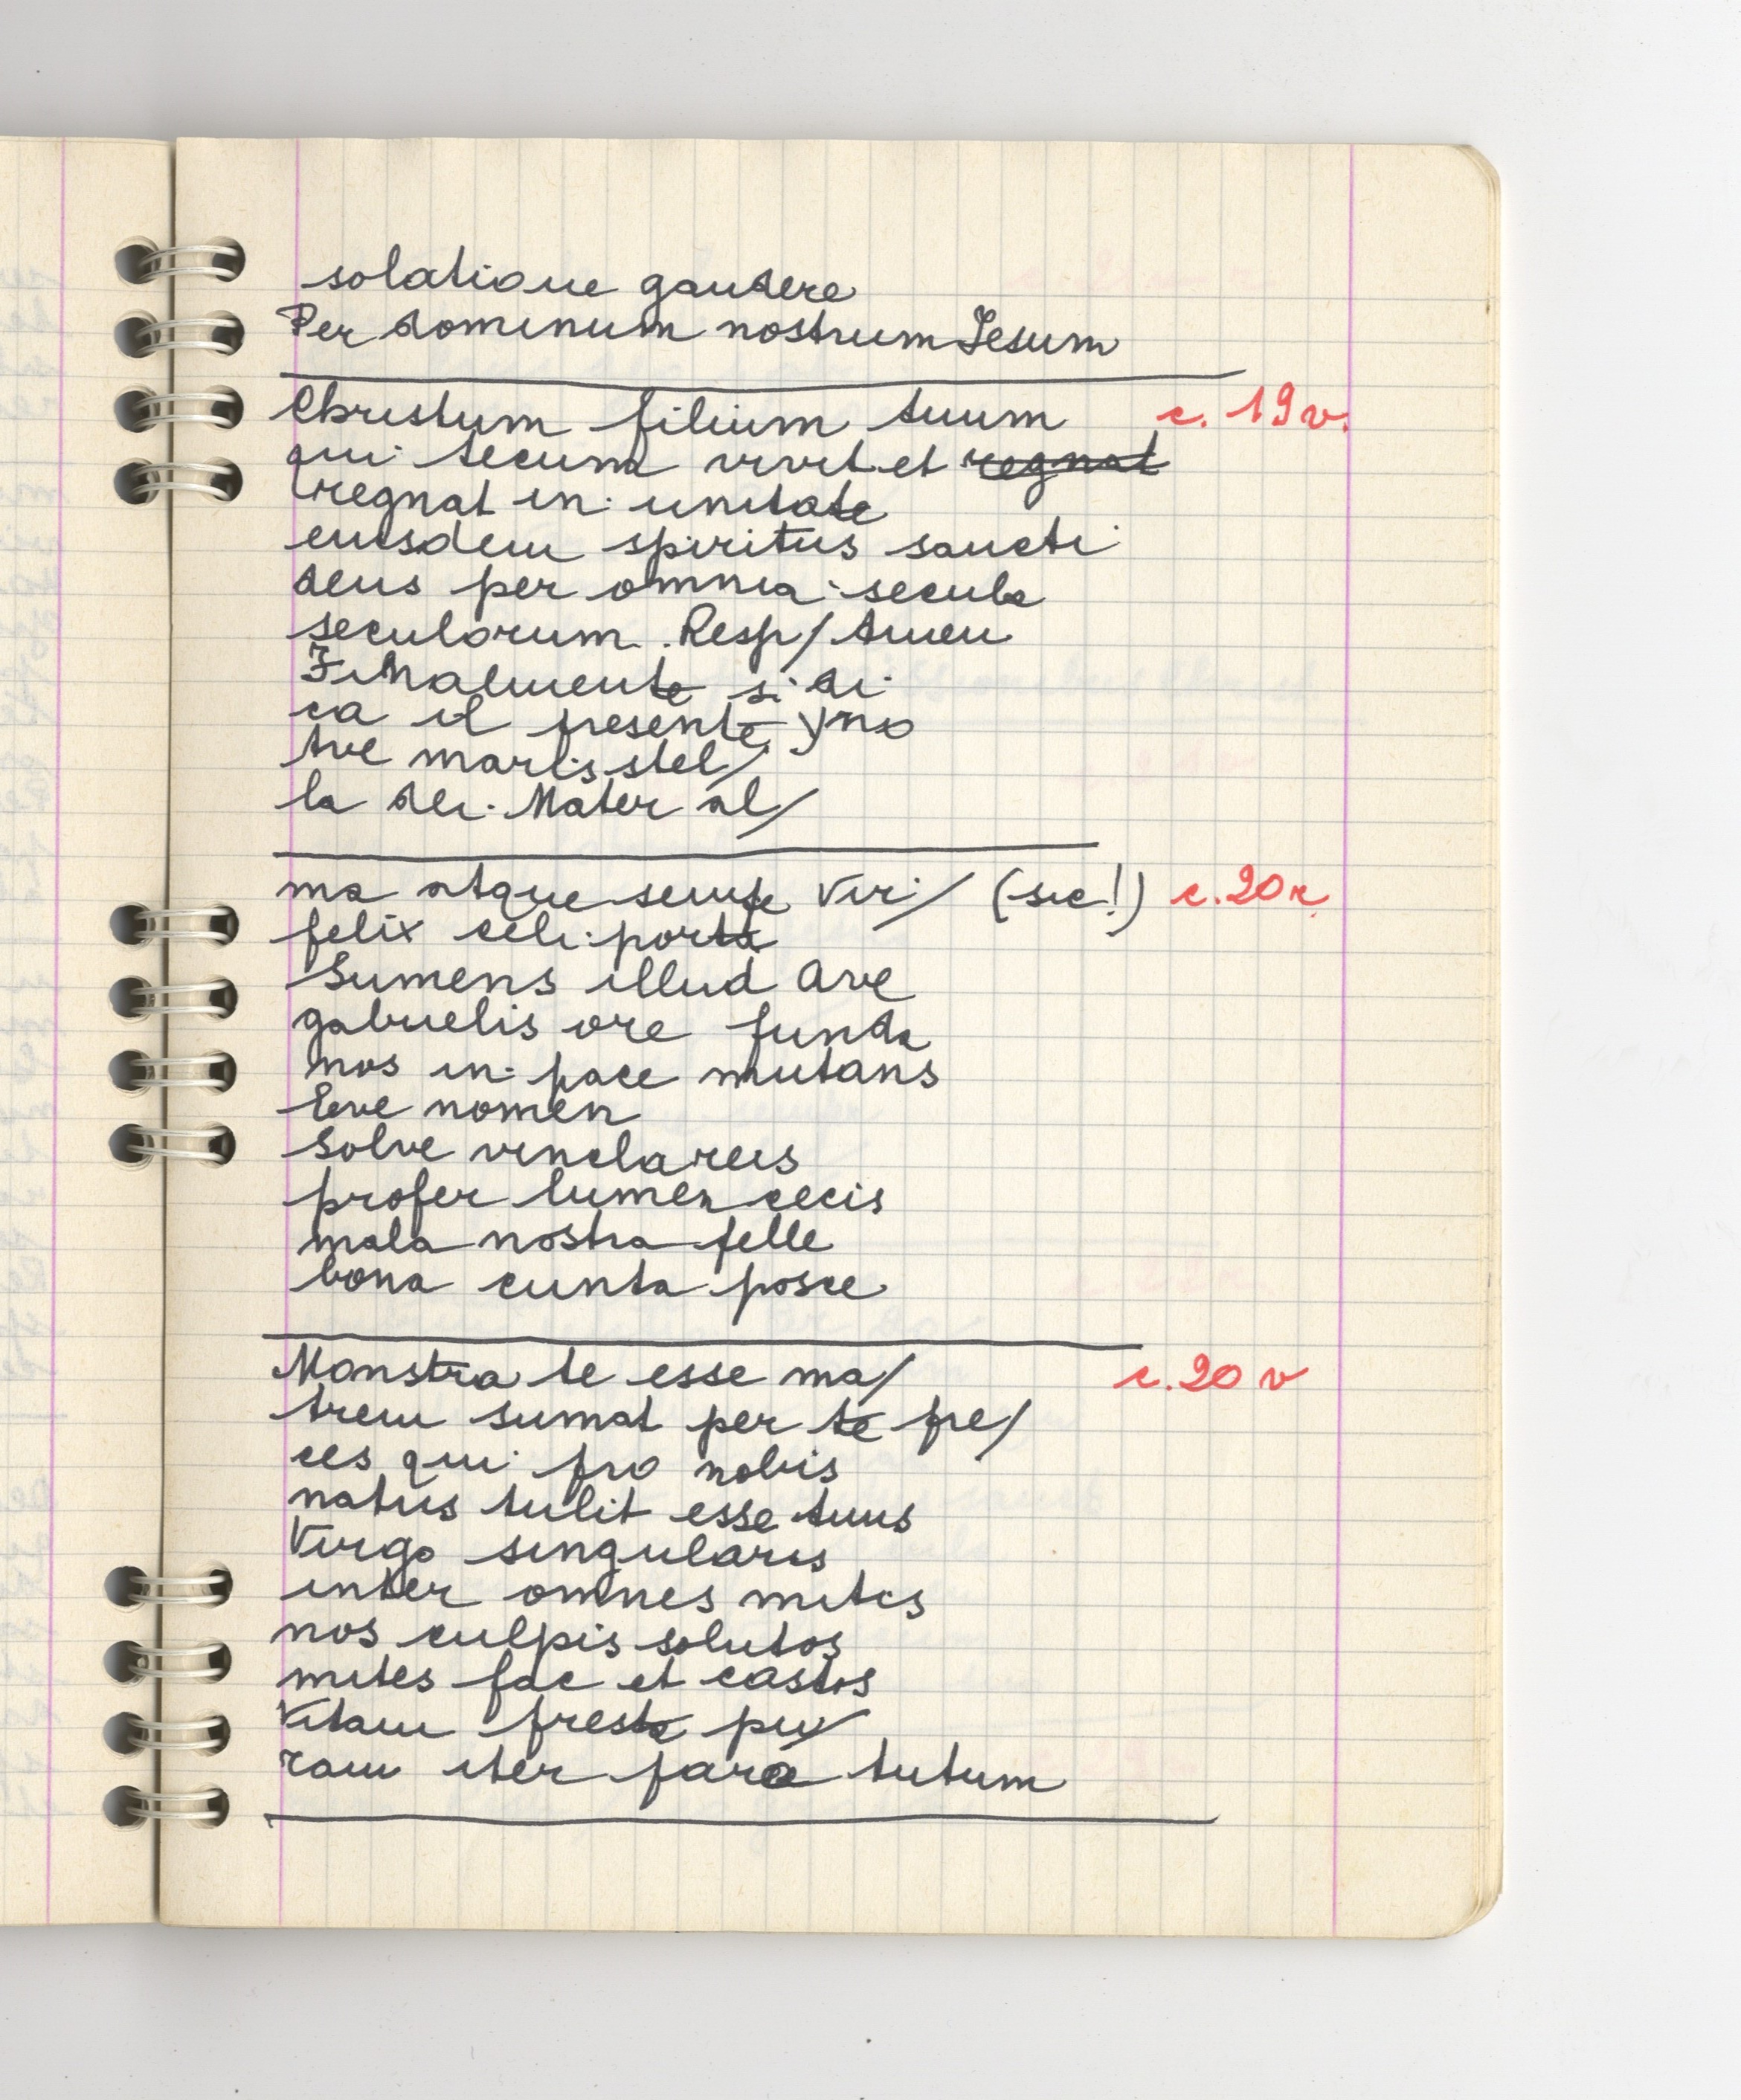 solatione gaudere
Per dominum nostrum Jesum
Christum filium tuum c. 19 v.
qui tecum vivit et regnat
regnat in unitate
eiusdem spiritus sancti
deus per omnia secula
seculorum. Resp/ Amen
Finalmente si di
ca il presente yno
Ave maris stel/
la dei Mater al/
ma atque sempe Vir/ (sic!) c. 20 r.
felix celi porta
Sumens illud Ave
gabrielis ore funda
nos in pace mutans
Eve nomen
Solve vincla reis
profer lumen cecis
mala nostra pelle
bona cunta posce
Monstra te esse ma/ c. 20 v
trem sumat per te pre/
ces qui pro nobis
natus tulit esse tuus
Virgo singularis
inter omnes mitis
nos culpis solutos
mites fac et castos
Vitam presta pu/
ram iter para tutum